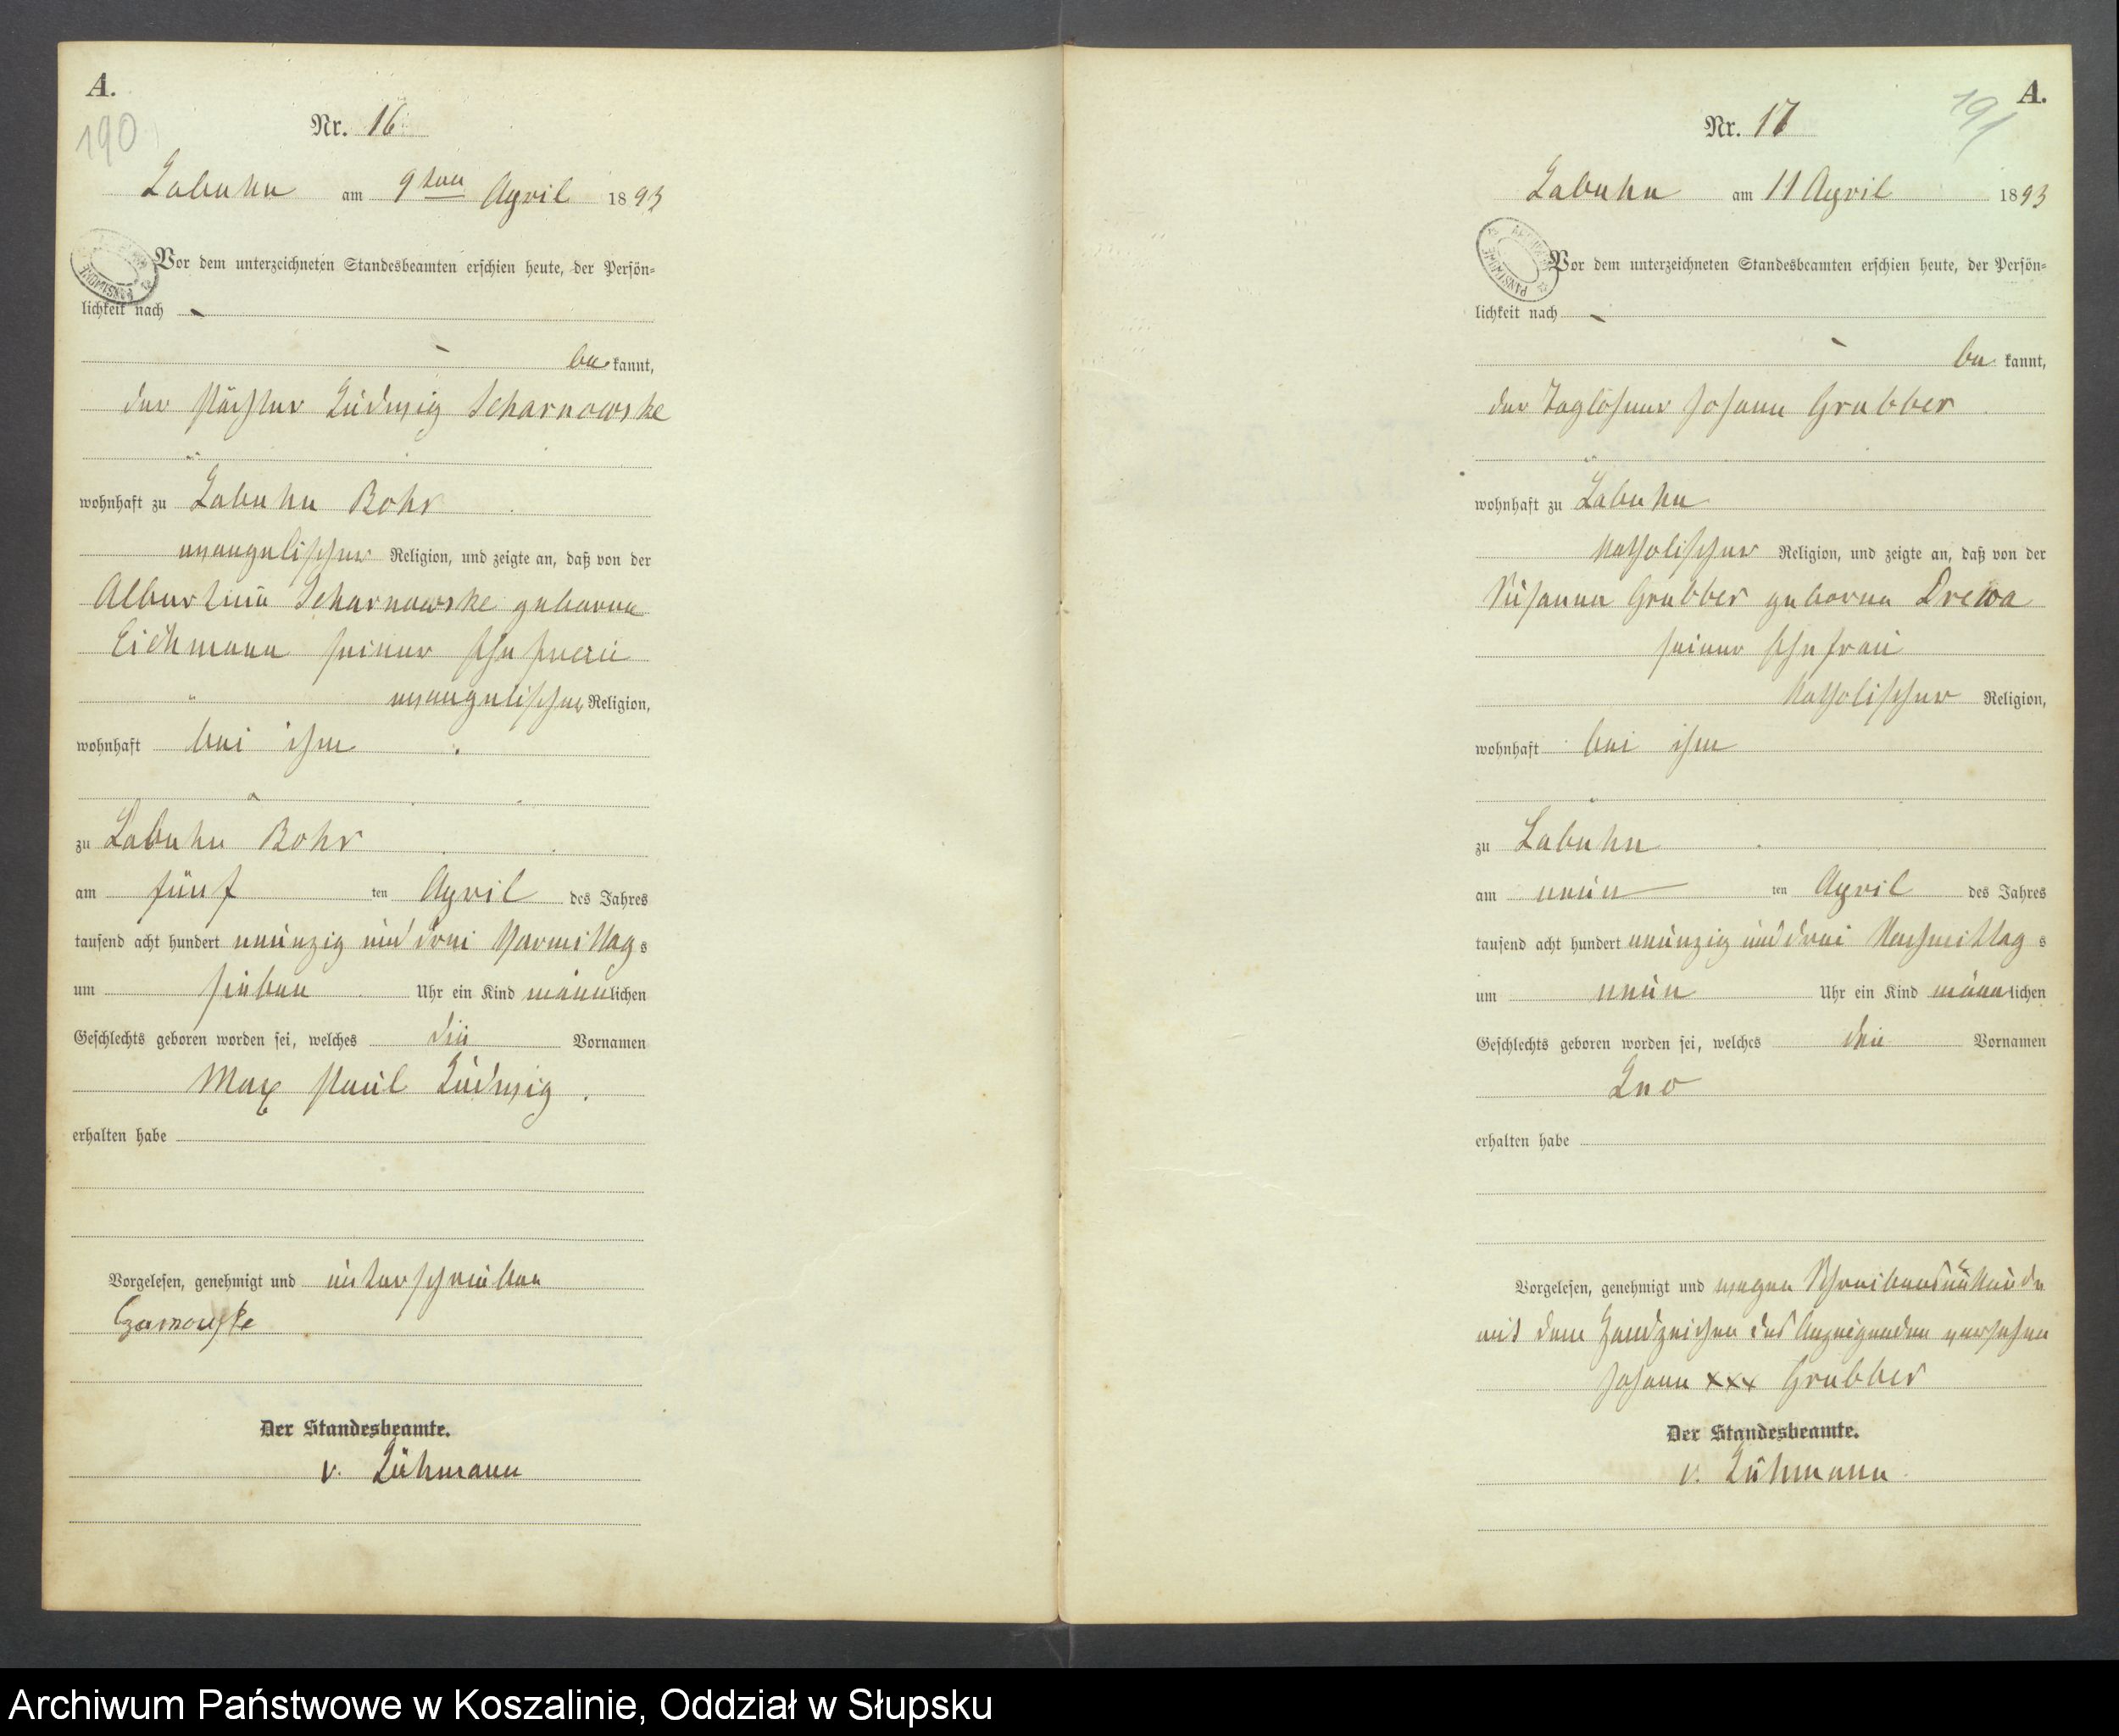 A.
190
Nr. 16
Labuhn am 9ten April 1893
Vor dem unterzeichneten Standesbeamten erschien heute, der Persön=
lichkeit nach
be kannt,
der Pächter Ludwig Scharnowske
wohnhaft zu Labuhn Bohr
evangelischer Religion, und zeigte an, daß von der
Albertine Scharnowske geborne
Eichmann seiner Ehefrau
evangelischer Religion,
wohnhaft bei ihm
zu Labuhn Bohr
am fünf ten April des Jahres
tausend acht hundert neunzig und drei Vormittag s
um sieben Uhr ein Kind männlichen
Geschlechts geboren worden sei, welches die Vornamen
Max Paul Ludwig.
erhalten habe
Vorgelesen, genehmigt und unterschrieben
Czarnowske
Der Standesbeamte.
v. Lühmann
A.
191
Nr. 17
Labuhn am 11 April 1893
Vor dem unterzeichneten Standesbeamten erschien heute, der Persön=
lichkeit nach
be kannt,
der Taglöhner Johann Grubber
wohnhaft zu Labuhn
katholischer Religion, und zeigte an, daß von der
Susanne Grubber geborne Drewa
seiner Ehefrau
katholischer Religion,
wohnhaft bei ihm
zu Labuhn
am neun ten April des Jahres
tausend acht hundert neunzig und drei Nachmittag s
um neun Uhr ein Kind männlichen
Geschlechts geboren worden sei, welches die Vornamen
Leo
erhalten habe
Vorgelesen, genehmigt und wegen Schreibensunkunde
mit dem Handzeichen des Anzeigenden versehen
Johann xxx Grubber
Der Standesbeamte.
v. Lühmann
Archiwum Państwowe w Koszalinie, Oddział w Słupsku